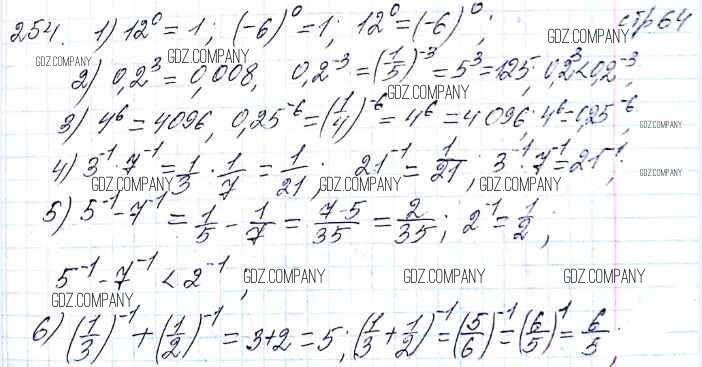 254. 1) 12⁰ = 1; (-6)⁰ = 1; 12⁰ = (-6)⁰; стр 64
GDZ.COMPANY GDZ.COMPANY GDZ.COMPANY
2) 0,2³ = 0,008, 0,2⁻³ = (1/5)⁻³ = 5³ = 125; 0,2³ < 0,2⁻³
GDZ.COMPANY
3) 4⁶ = 4096, 0,25⁻⁶ = (1/4)⁻⁶ = 4⁶ = 4096; 4⁶ = 0,25⁻⁶,
GDZ.COMPANY
4) 3⁻¹ · 7⁻¹ = 1/3 · 1/7 = 1/21; 21⁻¹ = 1/21; 3⁻¹ · 7⁻¹ = 21⁻¹;
GDZ.COMPANY GDZ.COMPANY GDZ.COMPANY GDZ.COMPANY
5) 5⁻¹ - 7⁻¹ = 1/5 - 1/7 = 7-5/35 = 2/35; 2⁻¹ = 1/2;
5⁻¹ - 7⁻¹ < 2⁻¹;
GDZ.COMPANY GDZ.COMPANY GDZ.COMPANY
GDZ.COMPANY
6) (1/3)⁻¹ + (1/2)⁻¹ = 3+2 = 5; (1/3 + 1/2)⁻¹ = (5/6)⁻¹ = (6/5)¹ = 6/5;